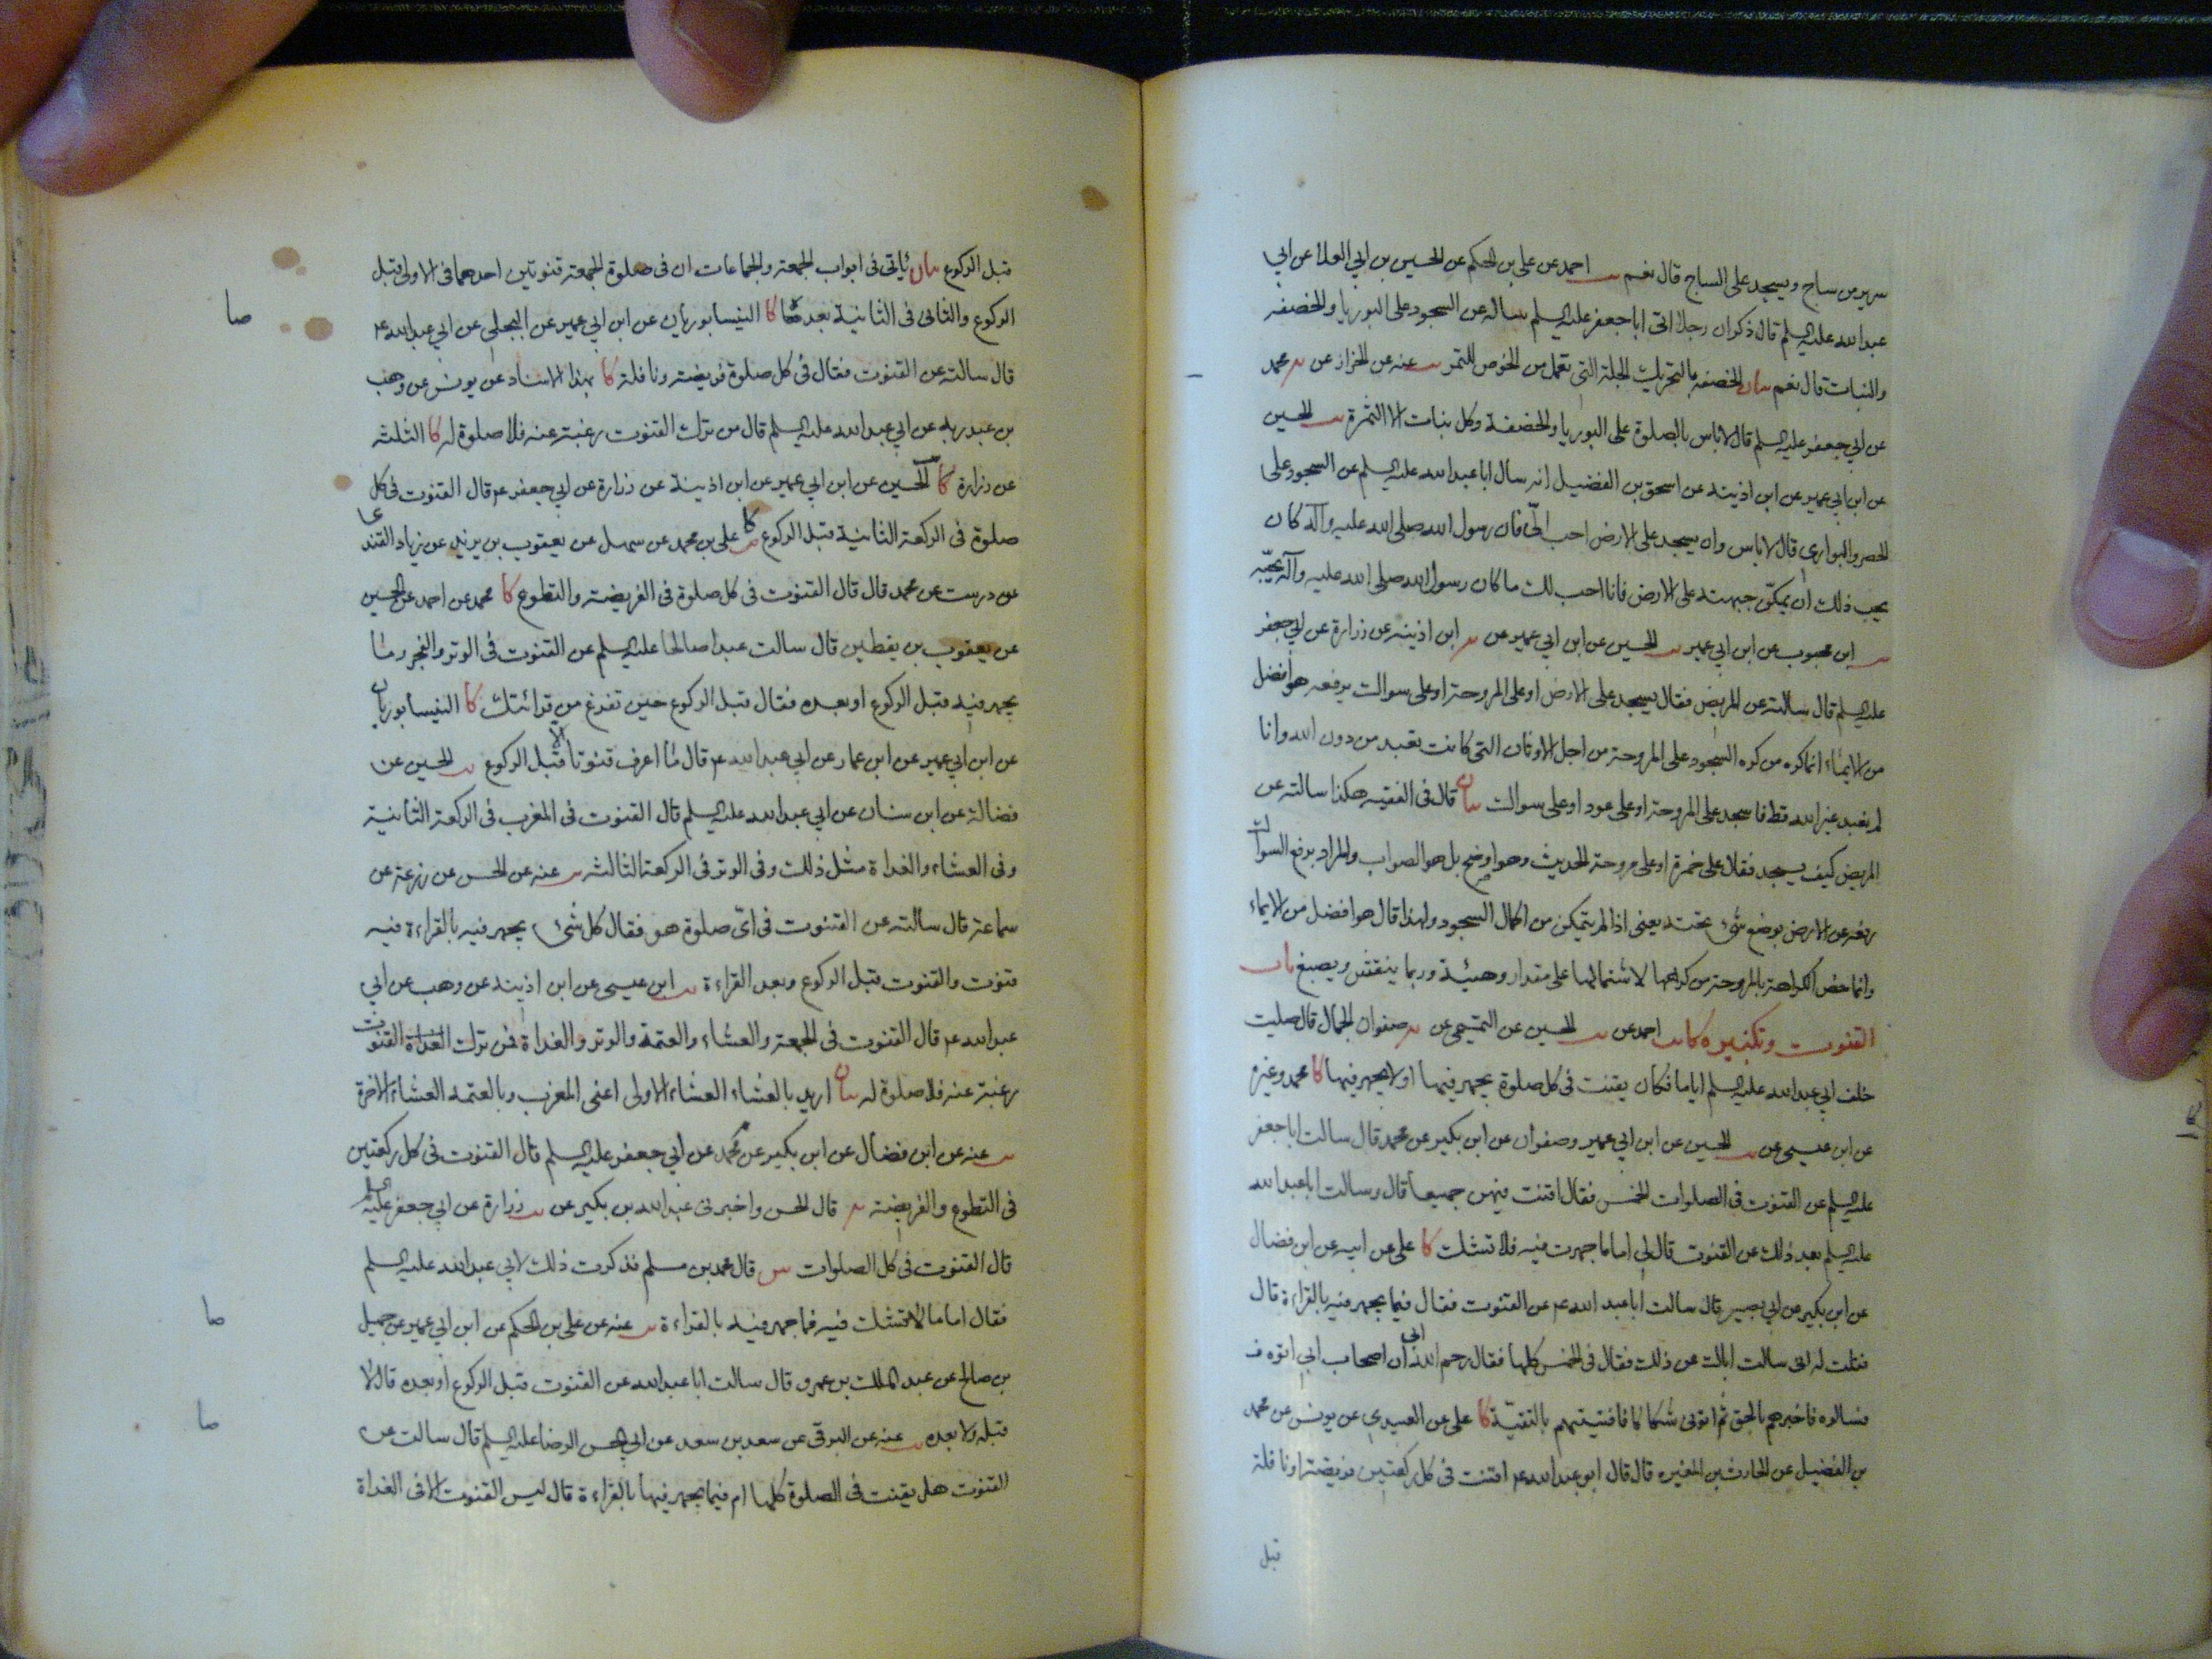 سرير من ساج ويسجد على الساج قال نعم يب احمد عن على بن الحكم عن الحسين بن ابي العلا عن ابي
عبد الله عليه السلم قال ذكر ان رجلا اتى ابا جعفر عليه السلم ساله عن السجود على البوريا والخصفه
والنبات قال نعم بيان الخصفه بالتحريك الجلة التى تعمل من الخوص للتمر يب عنه عن الخزاز عن محمد
عن ابي جعفر عليه السلم قال لا باس بالصلوة على البوريا والخصفة وكل نبات الا الثمرة يب الحسين
عن ابن ابي عمير عن ابن اذينه عن اسحق بن الفضيل انه سال ابا عبد الله عليه السلم عن السجود على
الحصر والبوارى قال لا باس وان يسجد على الارض احب الىّ فان رسول الله صلى الله عليه وآله كان
يحب ذلك ان يمكّن جبهته على الارض فانا احب لك ما كان رسول الله صلى الله عليه وآله يحبّه
يب ابن محبوب عن ابن ابي عمير يب الحسين عن ابن ابي عمير عن ابن اذينه عن زرارة عن ابي جعفر
عليه السلم قال سالته عن المريض فقال يسجد على الارض او على المروحة او على سواك يرفعه هو افضل
من الايماء انما كره من كره السجود على المروحة من اجل الاوثان التى كانت تعبد من دون الله وانا
لم نعبد غير الله قط فاسجد على المروحة او على عود او على سواك بيان قال فى الفقيه هكذا سالته عن
المريض كيف يسجد فقال على خمرة او على مروحة الحديث وهو اوضح بل هو الصواب والمراد برفع السواك
رفعه عن الارض بوضع شئ تحته يعنى اذا لم يتمكن من اكمال السجود ولهذا قال هو افضل من الايماء
وانما خص الكراهة بالمروحة من كرهها لاشتمالها على مقدار وهيئة وربما ينقش ويصبغ باب
القنوت وتكبيره كا يب احمد عن يب الحسين عن التميمي عن صفوان الجمال قال صليت
خلف ابي عبد الله عليه السلم اياما فكان يقنت فى كل صلوة يجهر فيها او لا يجهر فيها كا محمد وغيره
عن ابن عيسى عن يب الحسين عن ابن ابي عمير وصفوان عن ابن بكير عن محمد قال سالت ابا جعفر
عليه السلم عن القنوت فى الصلوات الخمس فقال اقنت فيهن جميعا قال وسالت ابا عبد الله
عليه السلم بعد ذلك عن القنوت قال لي اما ما جهرت فيه فلا تشك كا على عن ابيه عن ابن فضال
عن ابن بكير عن ابي بصير قال سالت ابا عبد الله ع عن القنوت فقال فيما يجهر فيه بالقراءة قال
فقلت له انى سالت اباك عن ذلك فقال فى الخمس كلها فقال رحم الله ابي ان اصحاب ابي اتوه ف
فسالوه فاخبرهم بالحق ثم اتونى شكاكا فافتيتهم بالتقيّة كا على عن العبيدي عن يونس عن محمد
بن الفضيل عن الحارث بن المغيره قال قال ابو عبد الله ع اقنت فى كل ركعتين فريضة او نافلة
قبل
قبل الركوع بيان ياتى فى ابواب الجمعة والجماعات ان فى صلوة الجمعة قنوتين احدهما فى الاولى قبل
الركوع والثانى فى الثانية بعده كا النيسابوريان عن ابن ابي عمير عن البجلى عن ابي عبد الله ع
صا
قال سالته عن القنوت فقال فى كل صلوة فريضة ونافلة كا بهذا الاسناد عن يونس عن وهب
بن عبد ربه عن ابي عبد الله عليه السلم قال من ترك القنوت رغبة عنه فلا صلوة له كا الثلثه
عن زرارة كا الحسين عن ابن ابي عمير عن ابن اذينة عن زرارة عن ابي جعفر ع قال القنوت فى كل
صلوة فى الركعة الثانية قبل الركوع كا على بن محمد عن سهل عن يعقوب بن يزيد عن زياد القند
عن درست عن محمد قال قال القنوت فى كل صلوة فى الفريضة والتطوع كا محمد عن احمد عن الحسين
عن يعقوب بن يقطين قال سالت عبدا صالحا عليه السلم عن القنوت فى الوتر والفجر وما
يجهر فيه قبل الركوع او بعده فقال قبل الركوع حين تفرغ من قرائتك كا النيسابوريان
عن ابن ابي عمير عن ابن عمار عن ابي عبد الله ع قال ما اعرف قنوتا الا قبل الركوع يب الحسين عن
فضالة عن ابن سنان عن ابي عبد الله عليه السلم قال القنوت فى المغرب فى الركعة الثانية
وفى العشاء والغداة مثل ذلك وفى الوتر فى الركعة الثالثه يب عنه عن الحسن عن زرعة عن
سماعة قال سالته عن القنوت فى اىّ صلوة هو فقال كل شئ يجهر فيه بالقراءة فيه
قنوت والقنوت قبل الركوع وبعد القراءة يب ابن عيسى عن ابن اذينه عن وهب عن ابي
عبد الله ع قال القنوت فى الجمعة والعشاء والعتمة والوتر والغداة فمن ترك الغداة القنوت
رغبة عنه فلا صلوة له بيان اريد بالعشاء العشاء الاولى اعنى المغرب وبالعتمة العشاء الاخرة
يب عنه عن ابن فضال عن ابن بكير عن محمد عن ابي جعفر عليه السلم قال القنوت فى كل ركعتين
فى التطوع والفريضة قال الحسن واخبرنى عبد الله بن بكير عن زرارة عن ابي جعفر عليه السلم
قال القنوت فى كل الصلوات قال محمد بن مسلم فذكرت ذلك لابي عبد الله عليه السلم
فقال اما ما لا تشك فيه فما جهر فيه بالقراءة يب عنه عن على بن الحكم عن ابن ابي عمير عن جميل
صا
بن صالح عن عبد الملك بن عمرو قال سالت ابا عبد الله عن القنوت قبل الركوع او بعده قال لا
قبله ولا بعده يب عنه عن البرقى عن سعد بن سعد عن ابي الحسن الرضا عليه السلم قال سالت عن
صا
القنوت هل يقنت فى الصلوة كلها ام فيما يجهر فيها بالقراءة قال ليس القنوت الا فى الغداة